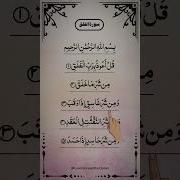 سورة الفلق
بِسْمِ اللَّهِ الرَّحْمَٰنِ الرَّحِيمِ
قُلْ أَعُوذُ بِرَبِّ الْفَلَقِ ①
مِن شَرِّ مَا خَلَقَ ②
وَمِن شَرِّ غَاسِقٍ إِذَا وَقَبَ ③
وَمِن شَرِّ النَّفَّاثَاتِ فِي الْعُقَدِ ④
وَمِن شَرِّ حَاسِدٍ إِذَا حَسَدَ ⑤